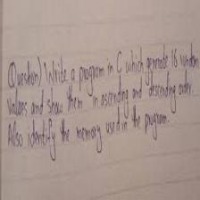 Question) Write a program in C which generate 16 random
values and show them in ascending and descending order.
Also identify the memory used in the program.